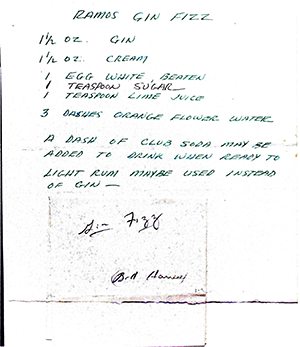 RAMOS GIN FIZZ
1 1/2 OZ. GIN
1 1/2 OZ. CREAM
1 EGG WHITE, BEATEN
1 TEASPOON SUGAR
1 TEASPOON LIME JUICE
3 DASHES ORANGE FLOWER WATER
A DASH OF CLUB SODA MAY BE
ADDED TO DRINK WHEN READY TO
LIGHT RUM MAYBE USED INSTEAD
OF GIN —
Gin Fizz